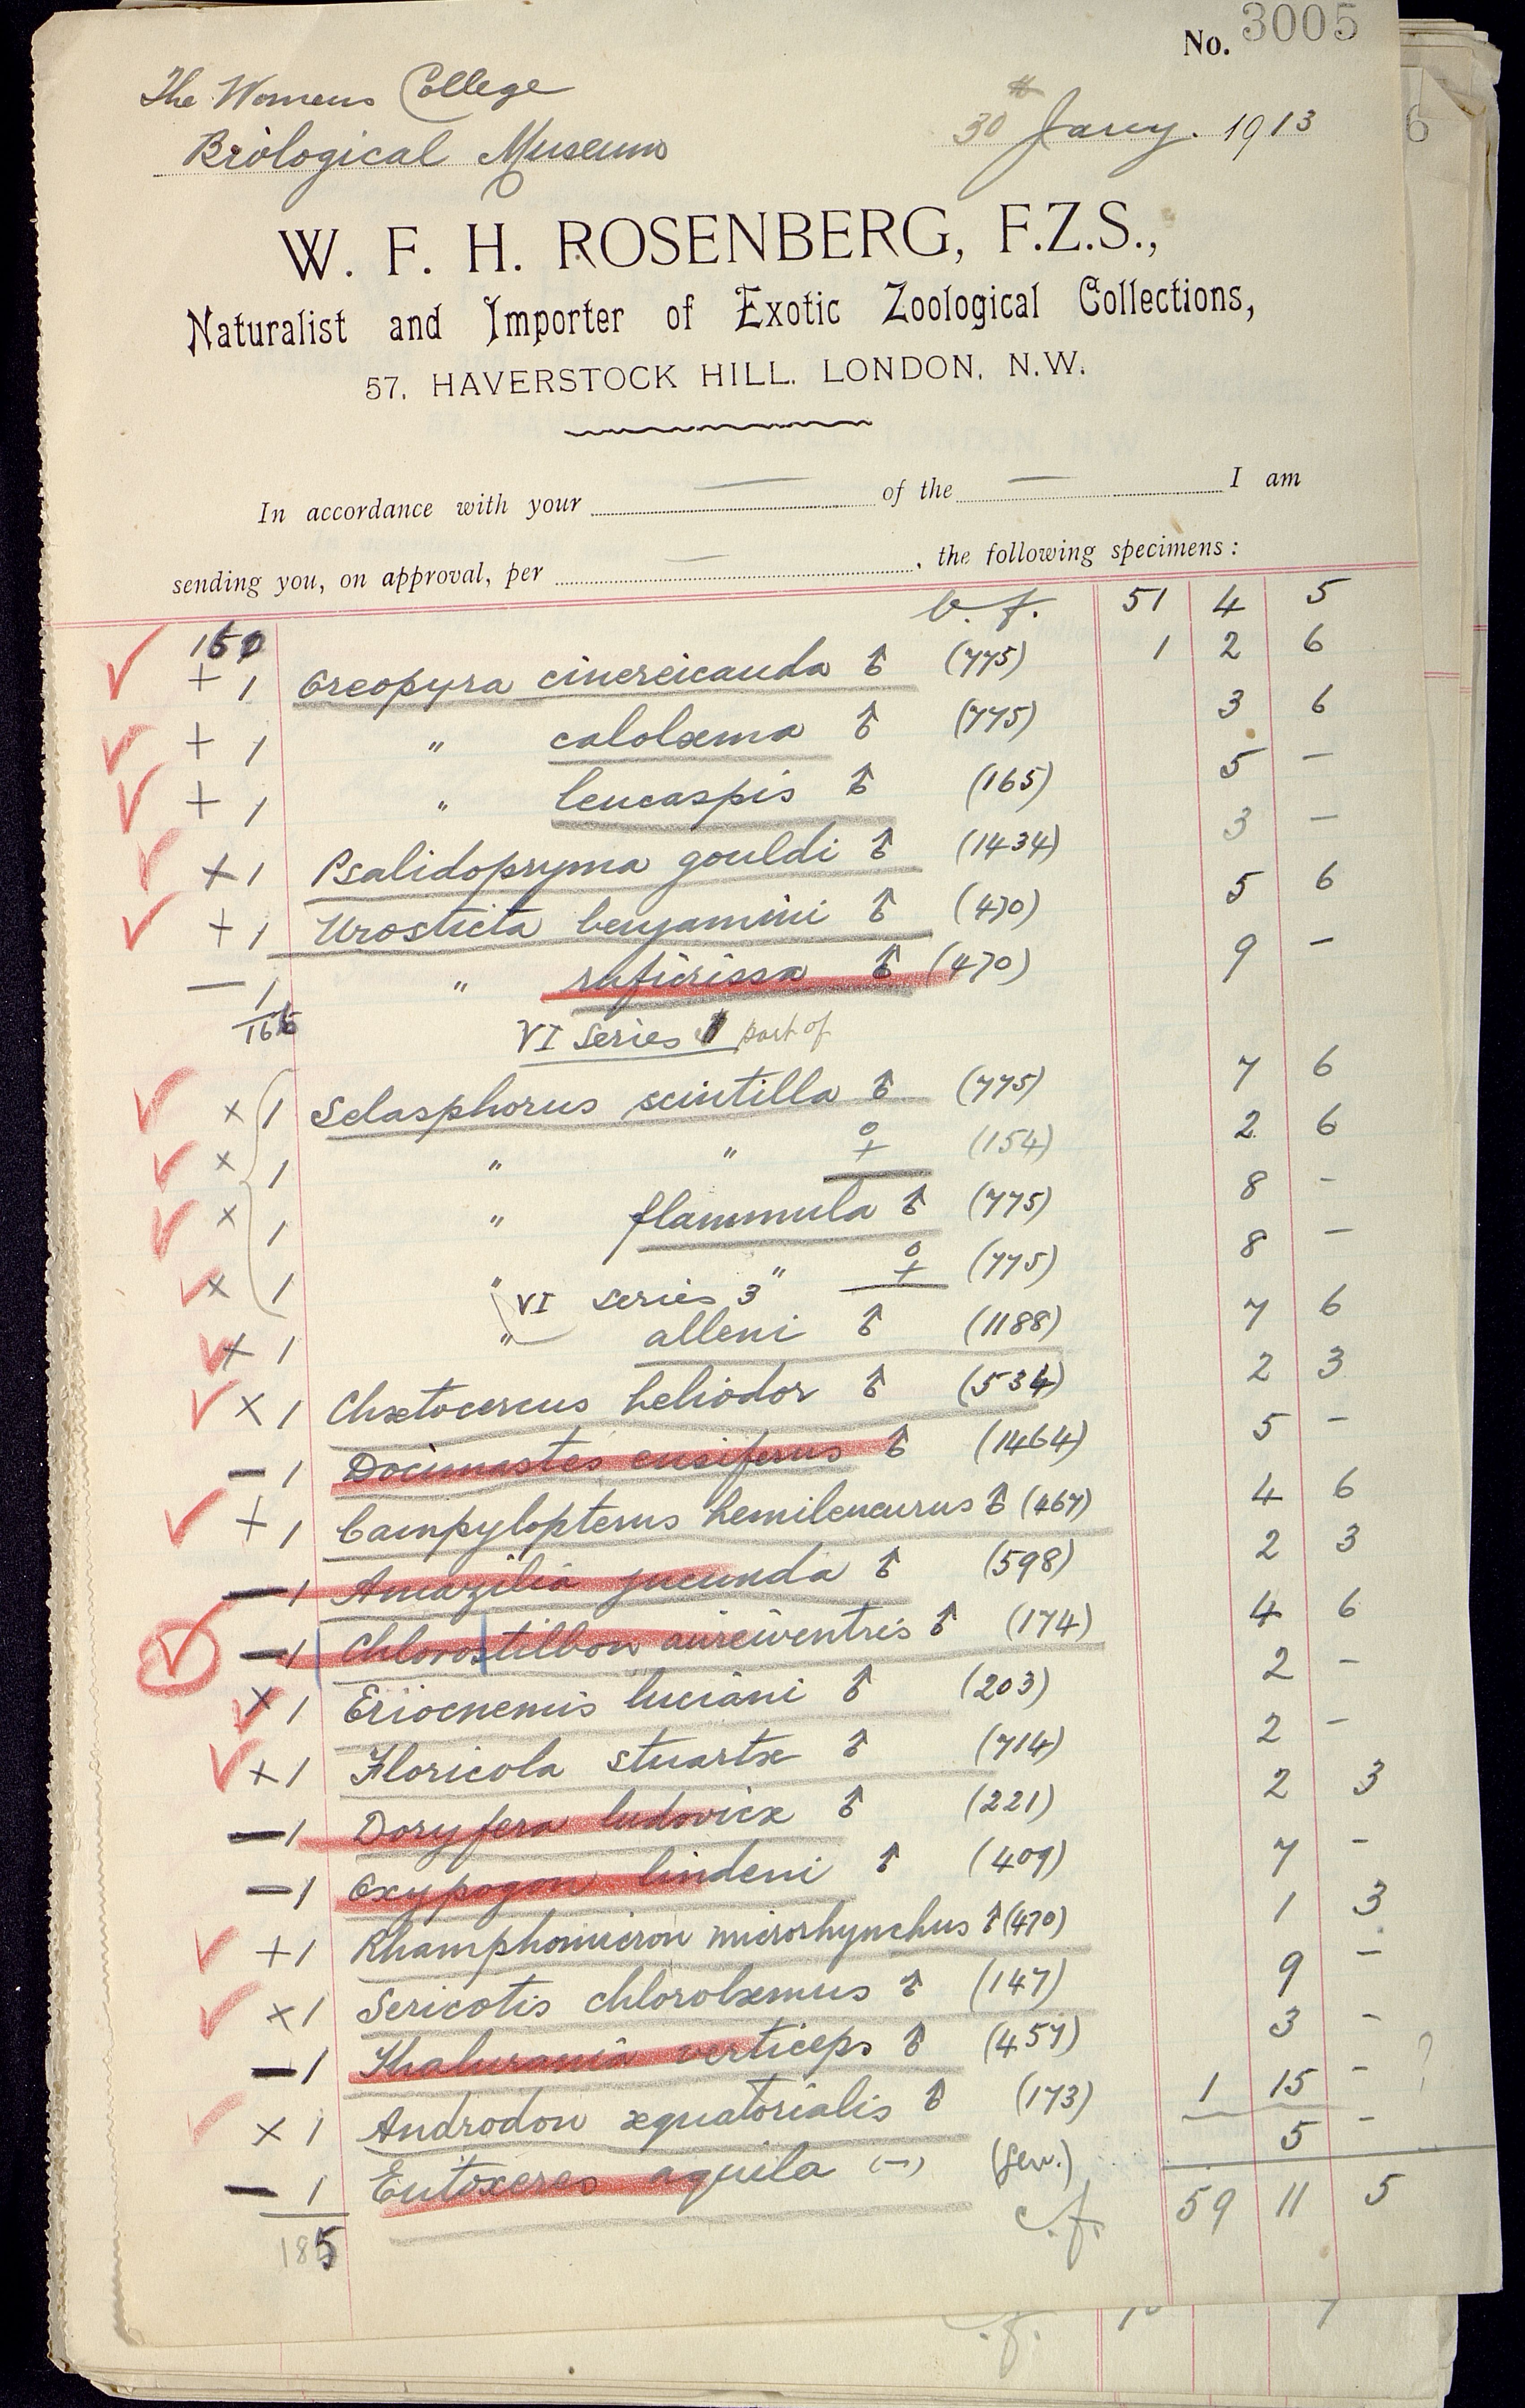 No. 3005
The Womens College
30th Jany. 1913
Biological Museum
W. F. H. ROSENBERG, F.Z.S.,
Naturalist and Importer of Exotic Zoological Collections,
57, HAVERSTOCK HILL, LONDON, N.W.
In accordance with your — of the — I am
sending you, on approval, per — , the following specimens :
b.f. 51 4 5
160
✓ + 1 Oreopyra cinereicauda ♂ (775) 1 2 6
✓ + 1 " calolæma ♂ (775) 3 6
✓ + 1 " leucaspis ♂ (165) 5 –
✓ + 1 Psalidoprymna gouldi ♂ (1434) 3 –
✓ + 1 Urosticta benjamini ♂ (470) 5 6
— 1 " ruficrissa ♂ (470) 9 –
166
VI Series 1 part of
✓ × 1 Selasphorus scintilla ♂ (775) 7 6
✓ × 1 " " ♀ (154) 2 6
✓ × 1 " flammula ♂ (775) 8 –
✓ × 1 " " ♀ (775) 8 –
VI series 3
✓ + 1 " alleni ♂ (1188) 7 6
✓ × 1 Chætocercus heliodor ♂ (534) 2 3
— 1 Docimastes ensiferus ♂ (1464) 5 –
✓ + 1 Campylopterus hemileucurus ♂ (467) 4 6
— 1 Amazilia jucunda ♂ (598) 2 3
✓ — 1 Chlorostilbon aureiventris ♂ (174) 4 6
✓ × 1 Eriocnemis luciani ♂ (203) 2 –
✓ × 1 Floricola stuartæ ♂ (714) 2 –
— 1 Doryfera ludoviciæ ♂ (221) 2 3
— 1 Oxypogon lindeni ♂ (409) 7 –
✓ + 1 Rhamphomicron microrhynchus ♂ (470) 1 3
✓ × 1 Sericotis chlorolæmus ♂ (147) 9 –
— 1 Thalurania verticeps ♂ (457) 3 –
✓ × 1 Androdon æquatorialis ♂ (173) 1 15 – ?
— 1 Eutoxeres aquila (–) (Gen.) 5 –
185
c.f. 59 11 5